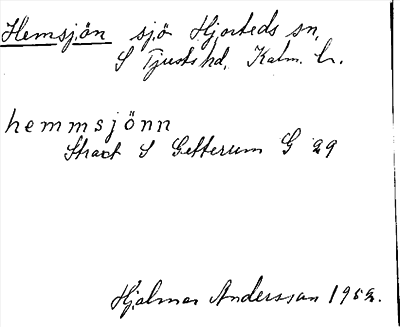 Hemsjön sjö Hjorteds sn.
S Tjusts hd. Kalm. l.
hemmsjönn
Strax S Getterum G 29
Hjalmar Andersson 1952.